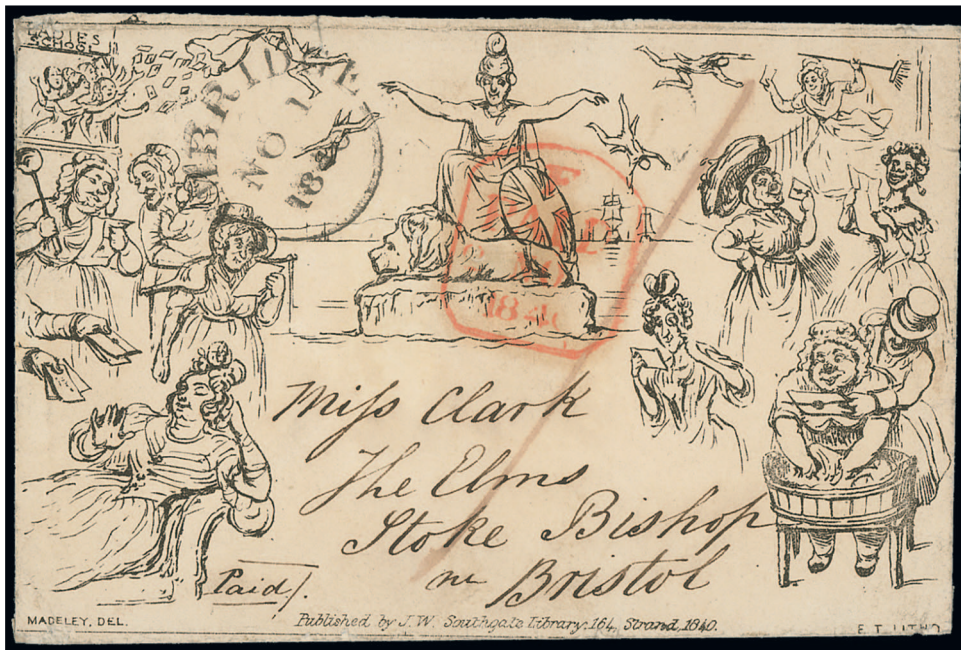 LADIES
SCHOOL
NO 1
1840
PAID
1840
Miss Clark
The Elms
Stoke Bishop
nr Bristol
Paid
MADELEY, DEL.
Published by J. W. Southgate Library, 164, Strand, 1840.